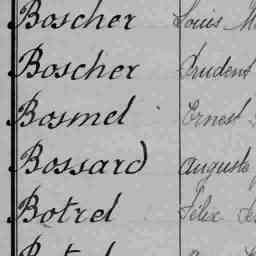 Boscher Louis
Boscher Prudent
Bosmel Ernest
Bossard Auguste
Botrel Félix